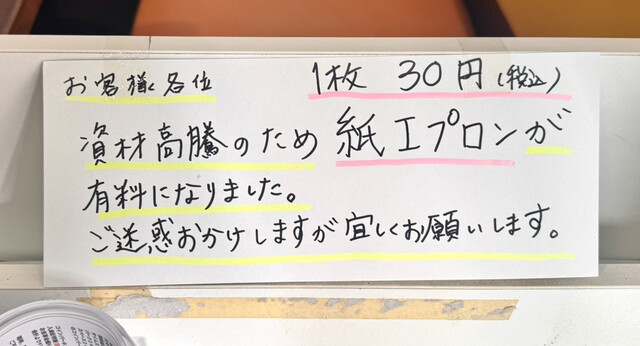 お客様各位 1枚 30円(税込)
資材高騰のため 紙エプロンが
有料になりました。
ご迷惑おかけしますが宜しくお願いします。